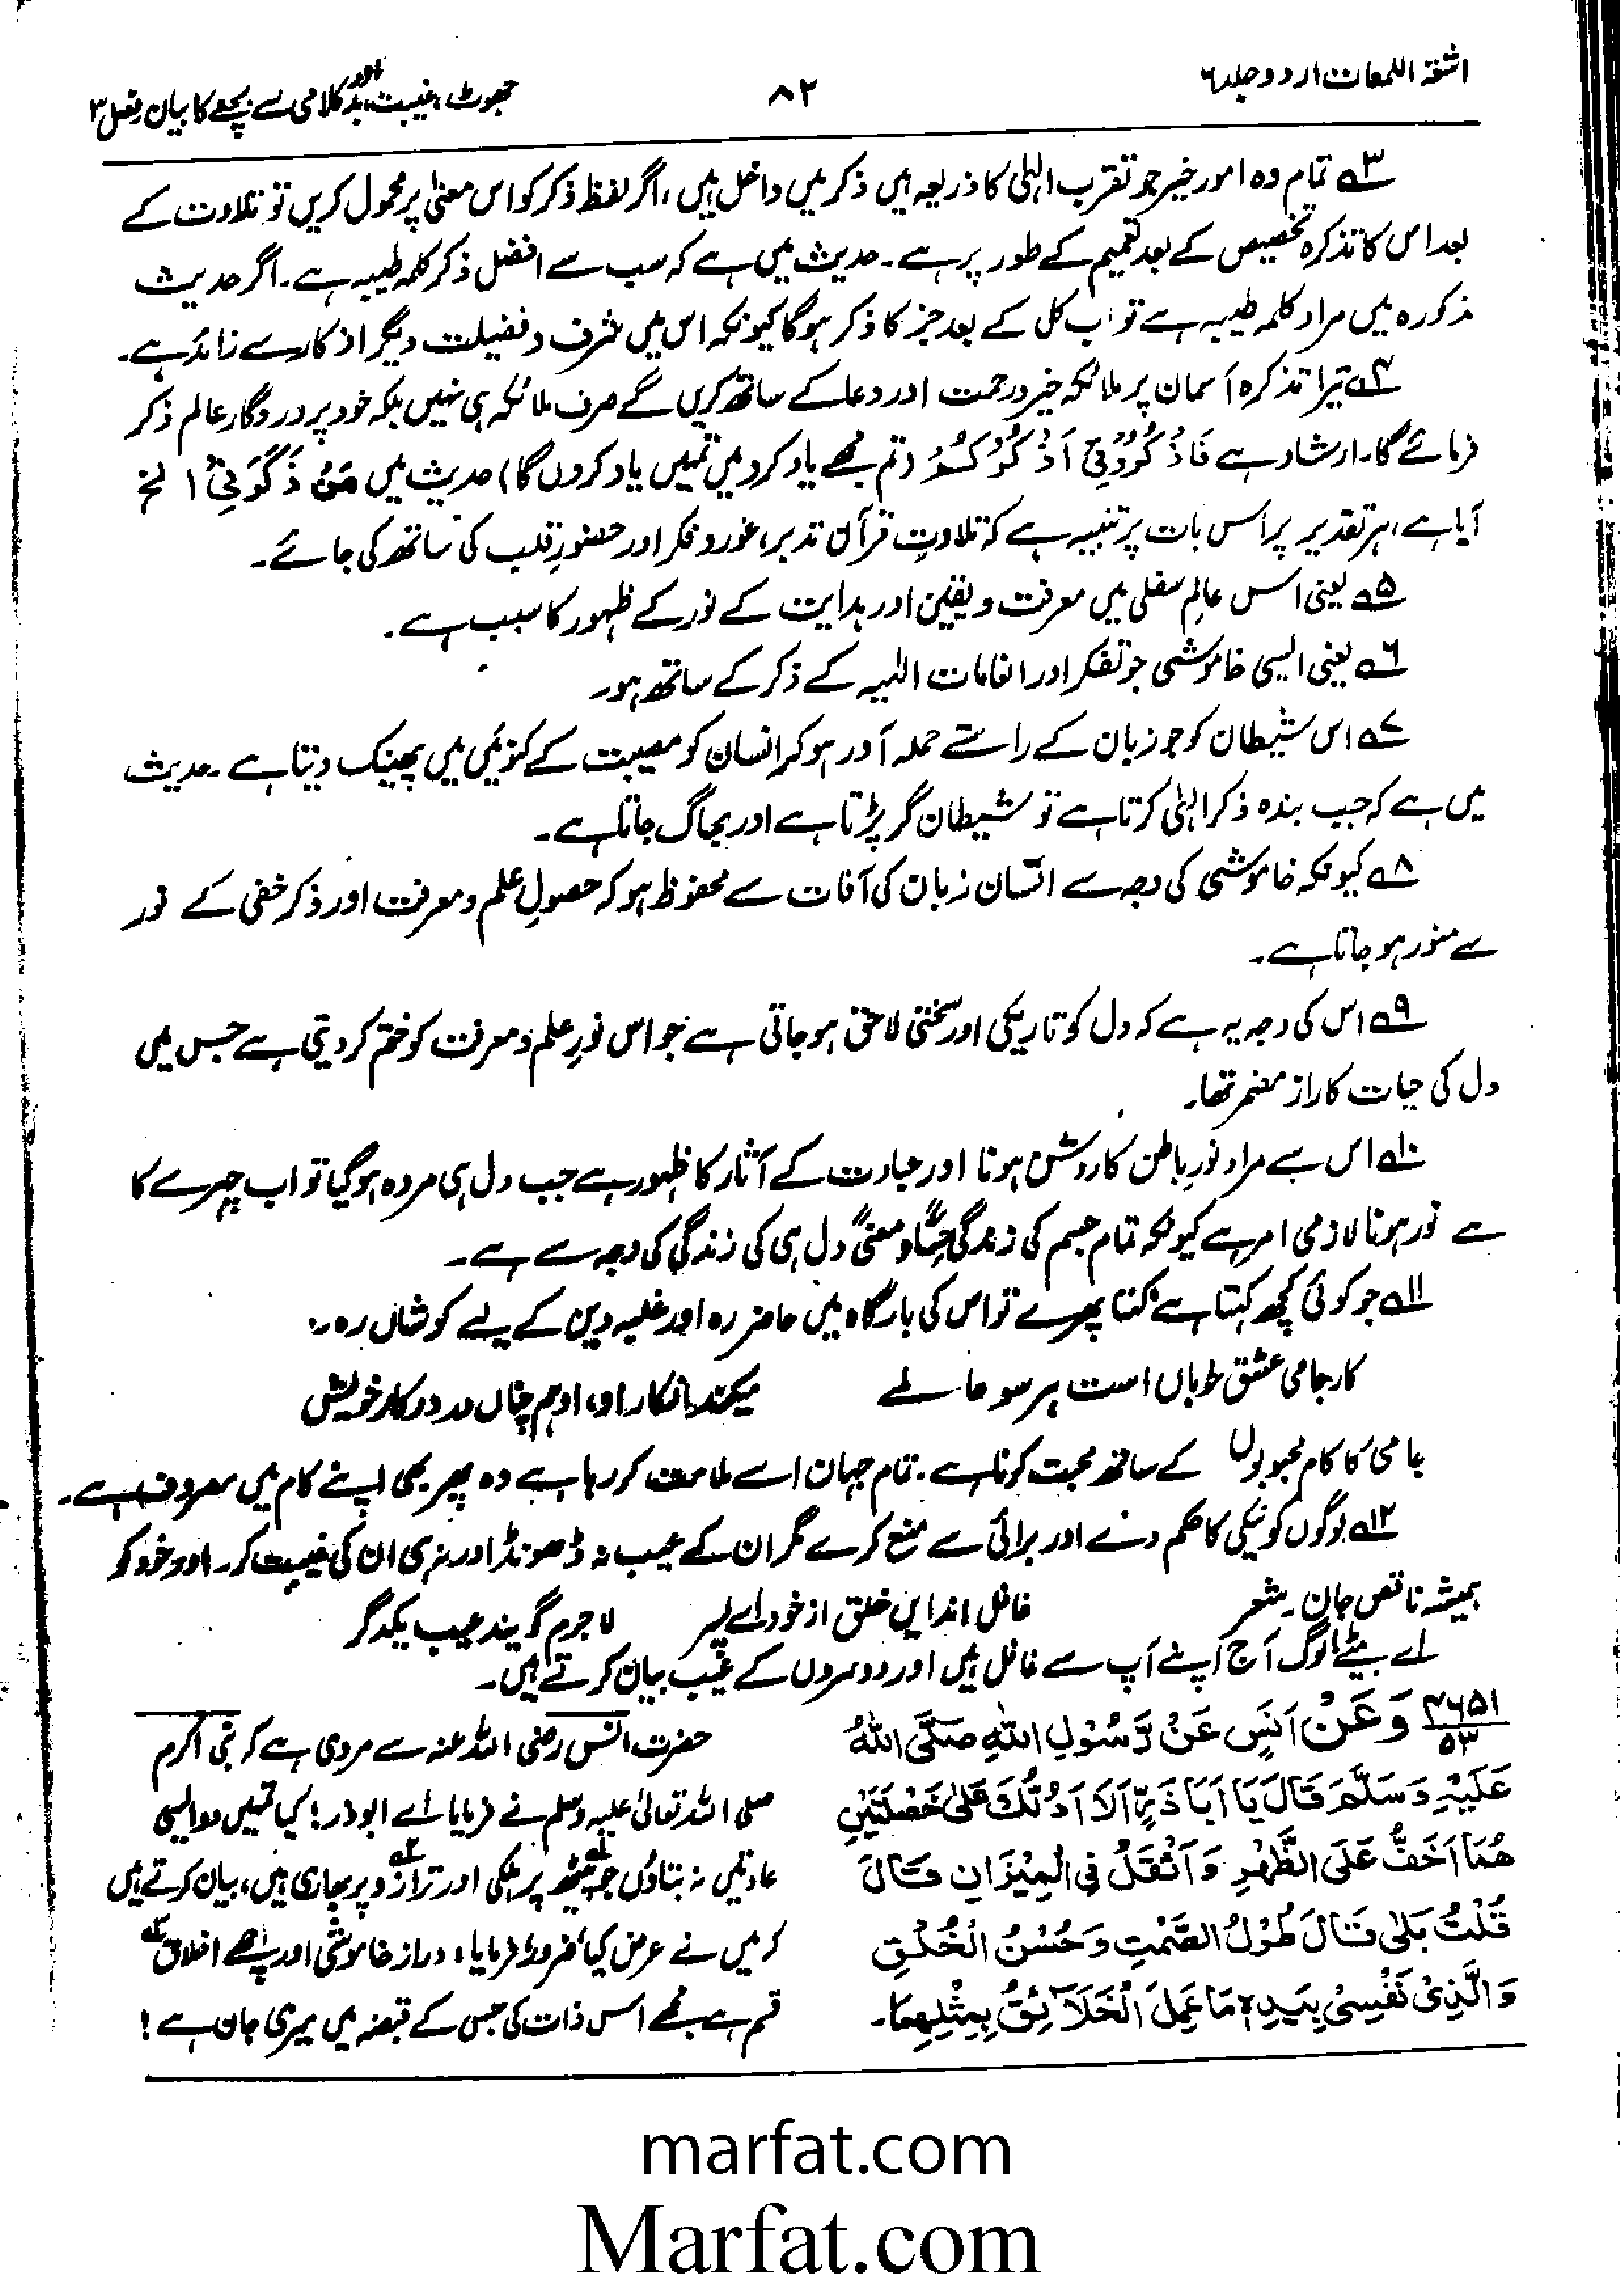 اشعۃ اللمعات اردو جلد ۶
۸۲
جھوٹ، غیبت، اور بدکلامی سے بچنے کا بیان فصل ۳
۳ تمام وہ امور خیر جو تقرب الہٰی کا ذریعہ ہیں ذکر میں داخل ہیں، اگر لفظ ذکر کو اس معنیٰ پر محمول کریں تو تلاوت کے
بعد اس کا تذکرہ تخصیص کے بعد تعمیم کے طور پر ہے۔ حدیث میں ہے کہ سب سے افضل ذکر کلمہ طیبہ ہے۔ اگر حدیث
مذکورہ میں مراد کلمہ طیبہ ہے تو اب کل کے بعد جز کا ذکر ہوگا کیونکہ اس میں شرف و فضیلت دیگر اذکار سے زائد ہے۔
۴ تیرا تذکرہ آسمان پر ملائکہ خیر و رحمت اور دعا کے ساتھ کریں گے صرف ملائکہ ہی نہیں بلکہ خود پروردگار عالم ذکر
فرمائے گا۔ ارشاد ہے فَاذْکُرُوْنِیْ اَذْکُرْکُمْ (تم مجھے یاد کرو میں تمہیں یاد کروں گا) حدیث میں مَنْ ذَکَرَنِیْ الخ
آیا ہے، ہر تقدیر پر اس بات پر تنبیہ ہے کہ تلاوتِ قرآن تدبر، غور و فکر اور حضورِ قلب کی ساتھ کی جائے۔
۵ یعنی اس عالمِ سفلی میں معرفت و یقین اور ہدایت کے نور کے ظہور کا سبب ہے۔
۶ یعنی ایسی خاموشی جو تفکر اور انعامات الٰہیہ کے ذکر کے ساتھ ہو۔
۷ اس شیطان کو جو زبان کے راستے حملہ آور ہو کر انسان کو مصیبت کے کنوئیں میں پھینک دیتا ہے۔ حدیث
میں ہے کہ جب بندہ ذکر الہٰی کرتا ہے تو شیطان گر پڑتا ہے اور بھاگ جاتا ہے۔
۸ کیونکہ خاموشی کی وجہ سے انسان زبان کی آفات سے محفوظ ہو کہ حصولِ علم و معرفت اور ذکر خفی کے نور
سے منور ہو جاتا ہے۔
۹ اس کی وجہ یہ ہے کہ دل کو تاریکی اور سختی لاحق ہو جاتی ہے جو اس نورِ علم و معرفت کو ختم کر دیتی ہے جس میں
دل کی حیات کا راز مضمر تھا۔
۱۰ اس سے مراد نورِ باطن کا روشن ہونا اور عبادت کے آثار کا ظہور ہے جب دل ہی مردہ ہوگیا تو اب چہرے کا
بے نور ہونا لازمی امر ہے کیونکہ تمام جسم کی زندگی حِسّاً و معنیً دل ہی کی زندگی کی وجہ سے ہے۔
۱۱ جو کوئی کچھ کہتا ہے کہتا پھرے تو اس کی بارگاہ میں حاضر رہ اور غلبہ دین کے لیے کوشاں رہ۔
کار جامی عشق خوباں است ہر سو عالمے میکند انکار او، او ہم چناں در کار خویش
جامی کا کام محبوبوں کے ساتھ محبت کرنا ہے۔ تمام جہان اسے ملامت کر رہا ہے وہ پھر بھی اپنے کام میں مصروف ہے۔
۱۲ لوگوں کو نیکی کا حکم دے اور برائی سے منع کرے مگر ان کے عیب نہ ڈھونڈ اور نہ ہی ان کی غیبت کر۔ اور خود کو
ہمیشہ ناقص جان۔ شعر غافل اند ایں خلق از خود اے پسر لاجرم گویند عیب یکدگر
اے بیٹے! لوگ آج اپنے آپ سے غافل ہیں اور دوسروں کے عیب بیان کرتے ہیں۔
۴۶۵۱
۵۳
وَعَنْ اَنَسٍ عَنْ رَّسُوْلِ اللّٰہِ صَلَّی اللّٰہُ
عَلَیْہِ وَسَلَّمَ قَالَ یَا اَبَا ذَرٍّ اَلَا اَدُلُّکَ عَلٰی خَصْلَتَیْنِ
ھُمَا اَخَفُّ عَلَی الظَّھْرِ وَاَثْقَلُ فِی الْمِیْزَانِ قَالَ
قُلْتُ بَلٰی قَالَ طُوْلُ الصَّمْتِ وَحُسْنُ الْخُلُقِ
وَالَّذِیْ نَفْسِیْ بِیَدِہٖ مَا عَمِلَ الْخَلَآئِقُ بِمِثْلِھِمَا۔
حضرت انس رضی اللہ عنہ سے مروی ہے کہ نبی اکرم
صلی اللہ تعالیٰ علیہ وسلم نے فرمایا اے ابوذر! کیا تمہیں دو ایسی
عادتیں نہ بتاؤں جو پیٹھ پر ہلکی اور ترازو پر بھاری ہیں، بیان کرتے ہیں
کہ میں نے عرض کیا، ضرور! فرمایا، دراز خاموشی اور اچھے اخلاق
قسم ہے مجھے اس ذات کی جس کے قبضہ میں میری جان ہے!
marfat.com
Marfat.com